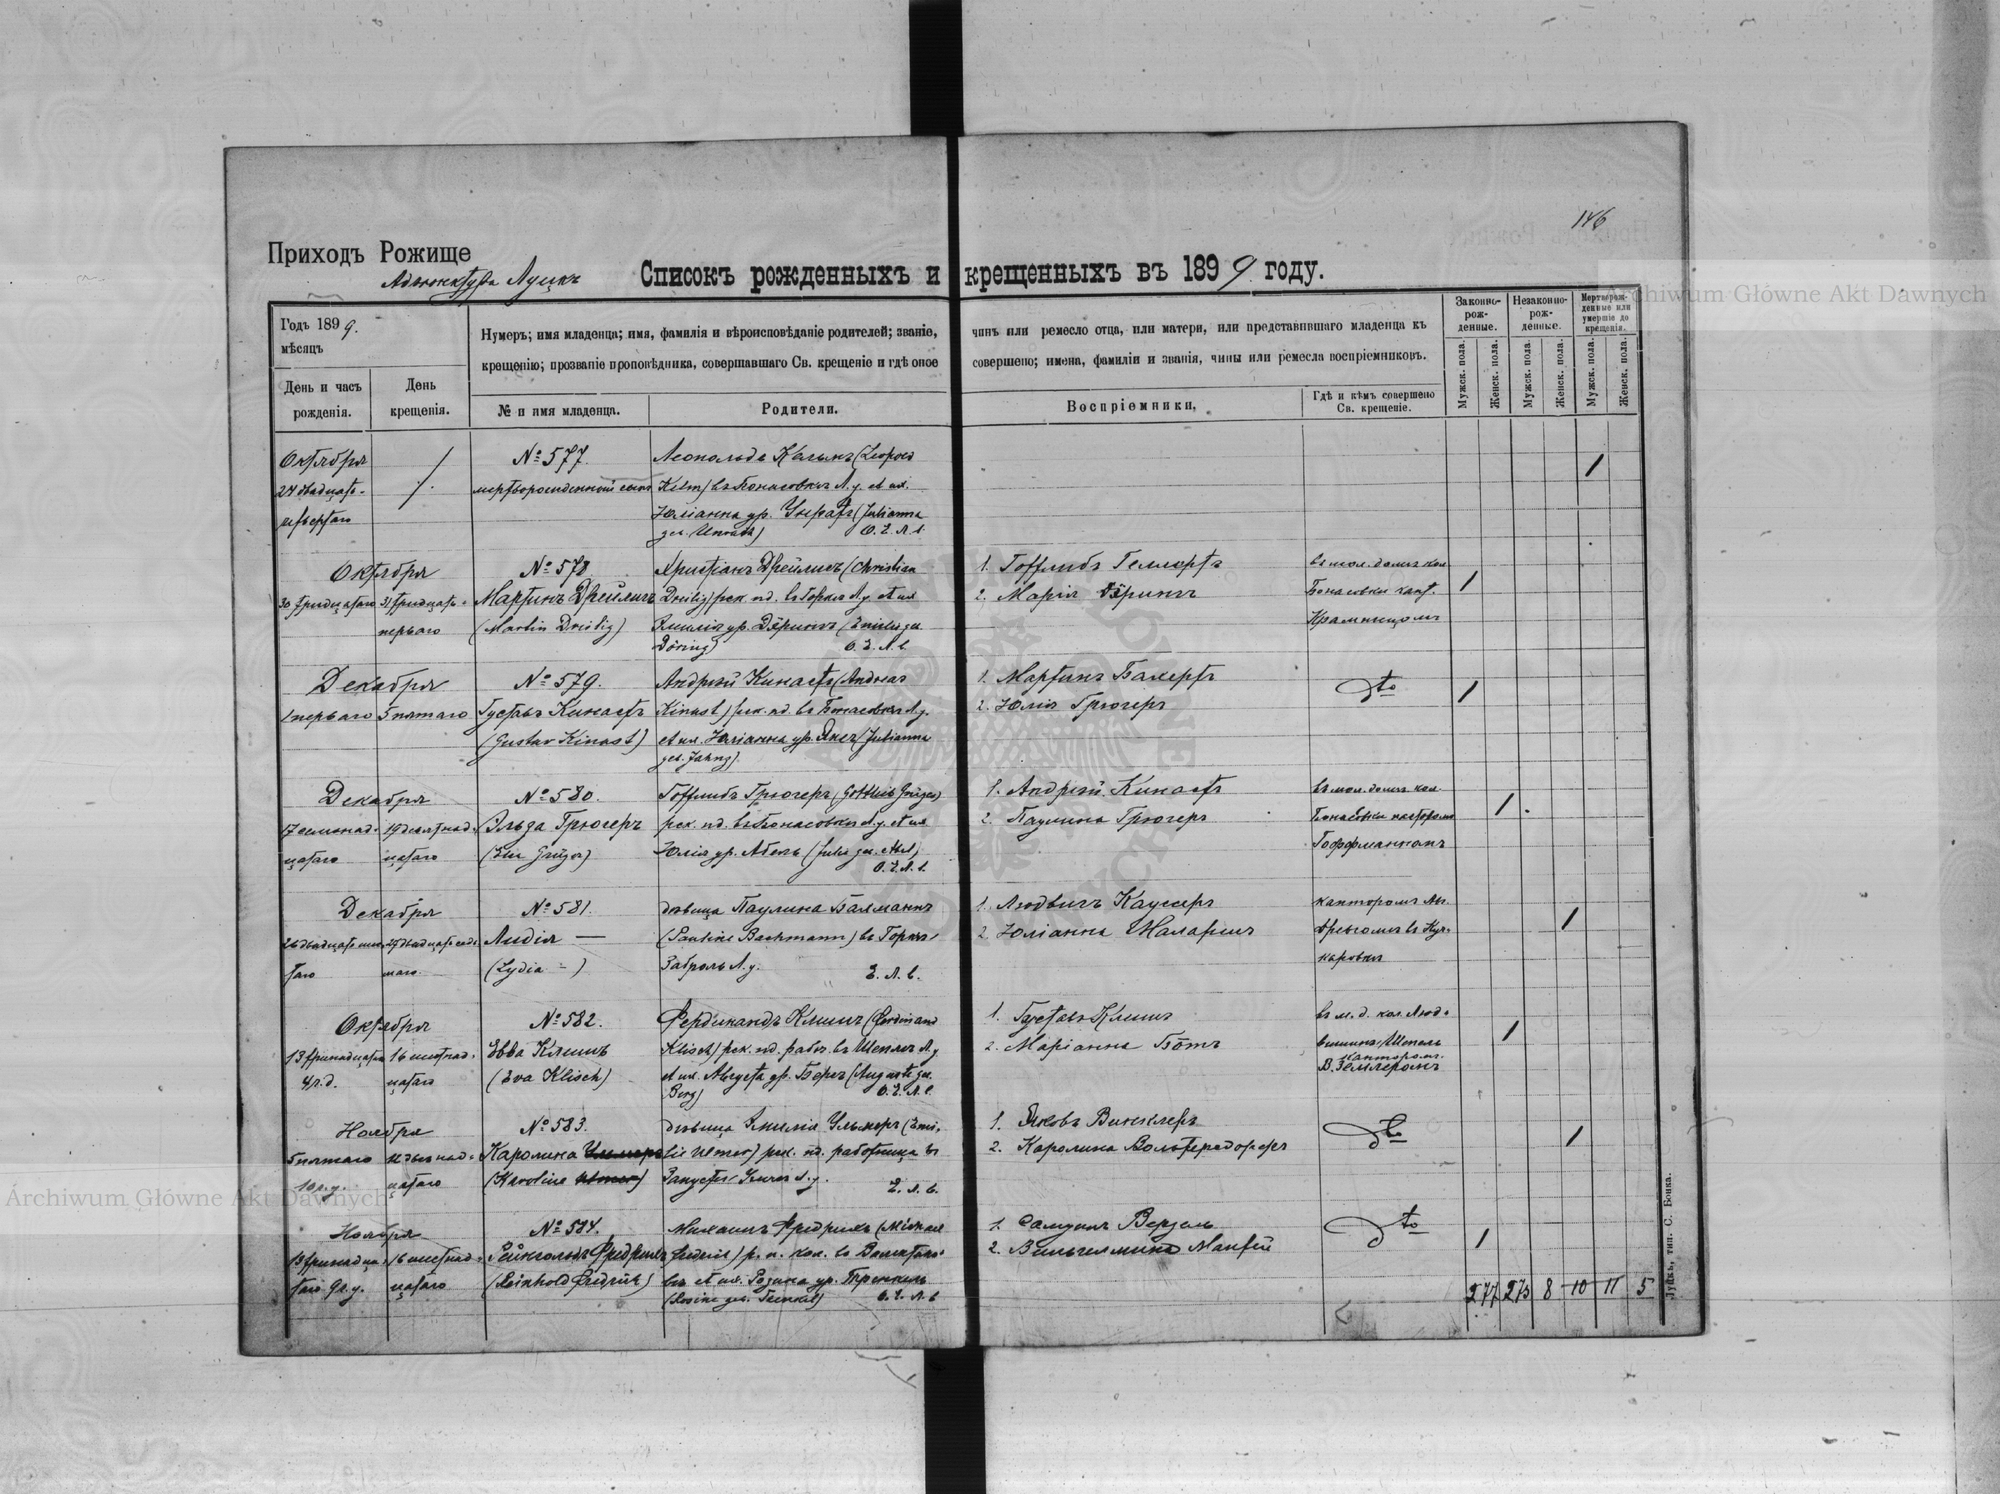 146
Приходъ Рожище
Адъюнктура Луцкъ
Списокъ рожденныхъ и крещенныхъ въ 1899 году.
Годъ 1899.
мѣсяцъ
День и часъ рожденія.
День крещенія.
Нумеръ; имя младенца; имя, фамилія и вѣроисповѣданіе родителей; званіе, чинъ или ремесло отца, или матери, или представившаго младенца къ
крещенію; прозваніе проповѣдника, совершавшаго Св. крещеніе и гдѣ оное совершено; имена, фамиліи и званія, чины или ремесла воспріемниковъ.
№ и имя младенца.
Родители.
Воспріемники,
Гдѣ и кѣмъ совершено Св. крещеніе.
Законно-рож-денные.
Незаконно-рож-денные.
Мертворож-денные или умершіе до крещенія.
Мужск. пола.
Женск. пола.
Мужск. пола
Женск. пола.
Мужск. пола.
Женск. пола.
Октября
24 двадцать-
четвертаго
№ 577.
мертворожденный сынъ
Леопольдъ Кельмъ (Leopold
Kelm) въ Бонасовкѣ Л. у. et ux.
Юліанна ур. Унратъ (Julianna
geb. Unrath)
О. Е. Л. в.
Октября
30 тридцатаго
31 тридцать-
перваго
№ 578
Мартинъ Дрейлигъ
(Martin Dreilig)
Христіанъ Дрейлигъ (Christian
Dreilig) рек. пд. въ Горкѣ Л. у. et ux
Эмилія ур. Дёрингъ (Emilie geb.
Döring)
О. Е. Л. в.
1. Готтлибъ Геллертъ
2. Марія Дёрингъ
въ мол. домѣ кол.
Бонасовки кант.
Крамницомъ
Декабря
1 перваго
5 пятаго
№ 579.
Густавъ Кинастъ
(Gustav Kinast)
Андрей Кинастъ (Andreas
Kinast) рек. пд. въ Бонасовкѣ Л. у.
et ux. Юліанна ур. Янгъ (Julianna
geb. Jahng).
1. Мартинъ Бахертъ
2. Юлія Грюгеръ
dto
Декабря
17 семнад-
цатаго
19 девятнад-
цатаго
№ 580.
Эльза Грюгеръ
Готтлибъ Грюгеръ (Gottlieb Grüger)
рек. пд. въ Бонасовкѣ Л. у. et ux
Юлія ур. Абель (Julie geb. Abel)
О. Е. Л. в.
1. Андрей Кинастъ
2. Паулина Грюгеръ
въ мол. домѣ кол.
Бонасовки пасторомъ
Гоффманномъ
Декабря
26 двадцать шес-
таго
27 двадцать седь-
маго
№ 581.
Лидія —
(Lydia —)
дѣвица Паулина Бахманнъ
(Pauline Bachmann) въ Горкѣ
Заброль Л. у.
Е. Л. в.
1. Людвигъ Каусеръ
2. Юліанна
канторомъ
Октября
13 тринадцатаго
4 ч. д.
16 шестнад-
цатаго
№ 582.
Евва Клишъ
(Eva Klisch)
Фердинандъ Клишъ (Ferdinand
Klisch) рек. пд. рабоч. въ Шепелѣ Л. у
et ux. Августа ур. Бергъ (Auguste geb.
Berg)
О. Е. Л. в.
1. Густавъ Клишъ
2. Маріанна Ботъ
въ м. д. кол. Люд-
канторомъ
Ноября
5 пятаго
10 ч. у.
12 двѣнад-
цатаго
№ 583.
Каролина Ульмеръ
(Karoline Ulmer)
дѣвица Эмилія Ульмеръ (Emi-
lie Ulmer) рек. пд. работница въ
Л. у.
Е. Л. в.
1. Яковъ Винклеръ
2. Каролина Вольфередорфъ
dto
Ноября
13 тринадца-
таго 9 ч. у.
16 шестнад-
цатаго
№ 584.
Рейнгольдъ Фридрихъ
(Reinhold Fridrik)
Михаилъ Фридрихъ (Michael
Fridrik) р. п. кол. въ
въ et ux. Розина ур. Тренкель
(Rosine geb. Trenkel)
О. Е. Л. в
1. Самуилъ Вендель
2. Вильгелмина Манфей
dto
277 273 8 10 11 5
Луцкъ, тип. С. Бонка.
Archiwum Główne Akt Dawnych
Archiwum Główne Akt Dawnych